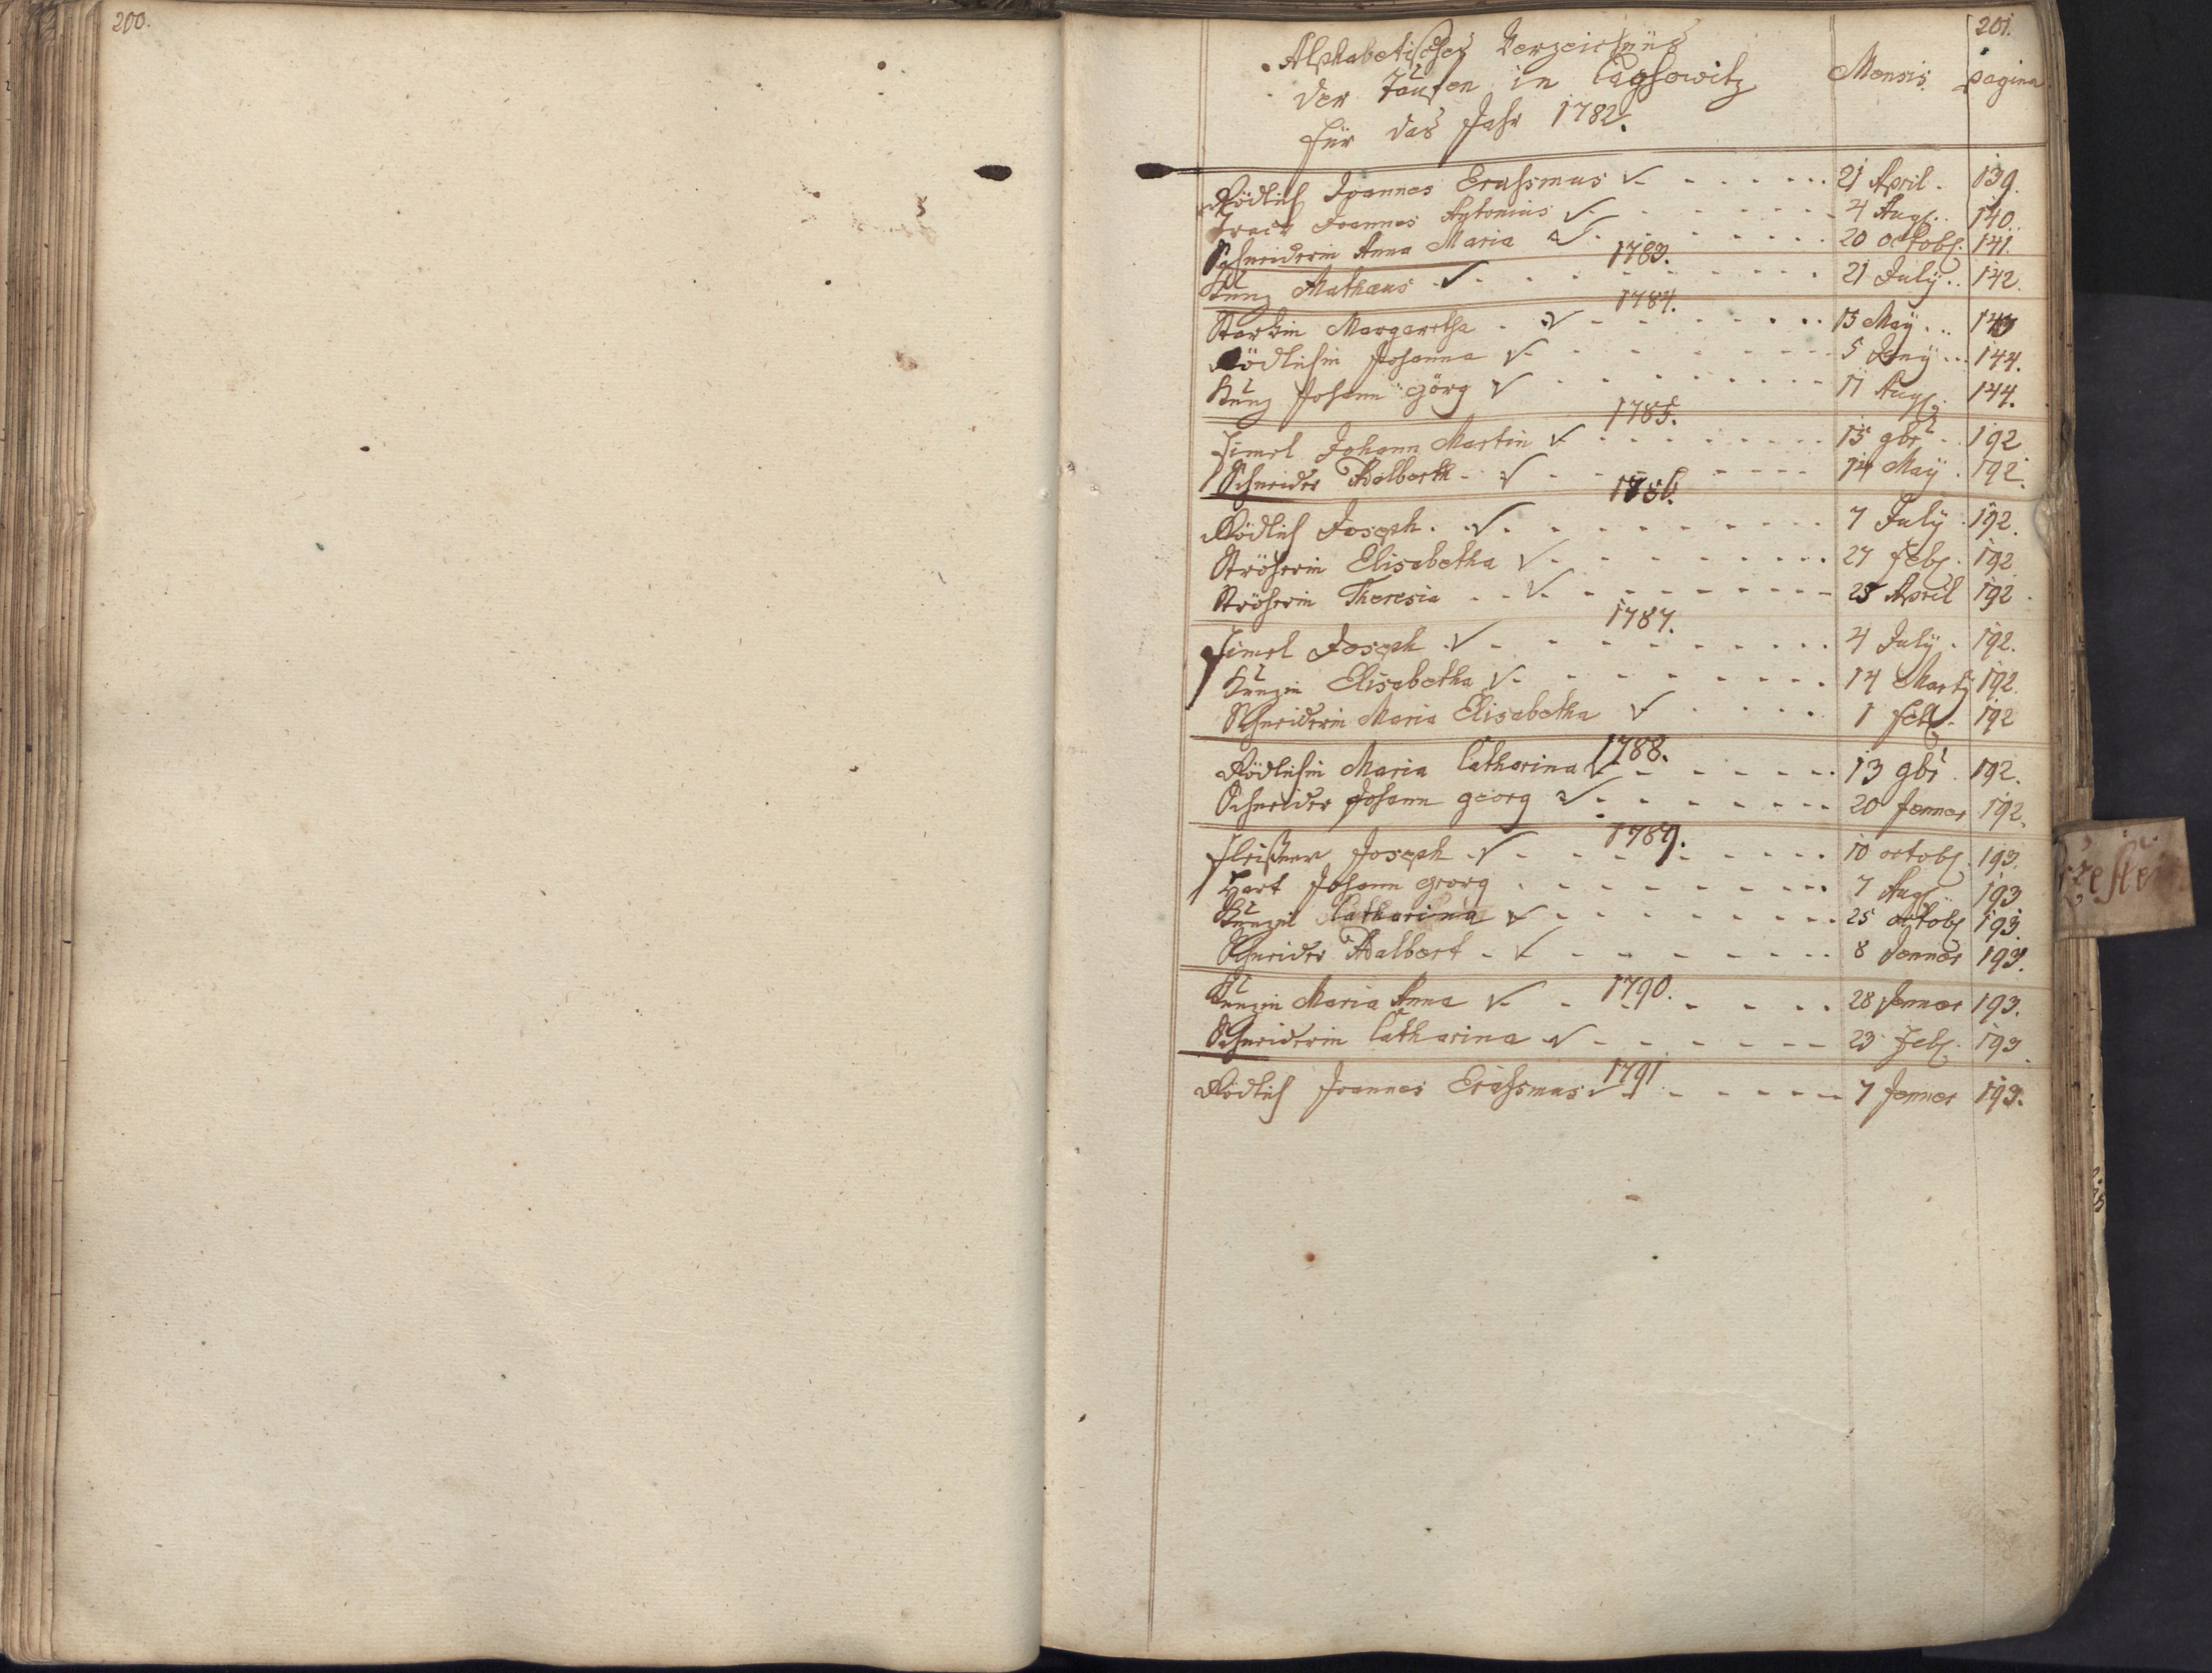 200.
201.
Alphabetisches Verzeichnüs
der Taufen in Caghowitz
für das Jahr 1782.
Mensis. pagina
Rödlich Joannes Erahsmus 21 April. 139.
Joannes Antonius 4 Aug. 140.
Schneiderin Anna Maria 20 octob. 141.
1783.
Kunz Mathæus 21 July. 142.
1784.
Starkin Margaretha 15 May.
Rödlichin Johanna 5 144.
Kunz Johann Görg 17 Aug. 144.
1785.
Simel Johann Martin 15 9br. 192
Schneider Adalberth 14 May. 192.
1786.
Rödlich Joseph. 7 July 192.
Ströherin Elisabetha 27 feb. 192
Ströherin Theresia 25 April 192
1787.
Simel Joseph 4 July. 192.
Kunzin Elisabetha 14 Marty 192.
Schneiderin Maria Elisabetha 1 feb. 192
1788.
Rödlichin Maria Catharina 13 9br. 192.
Schneider Johann georg 20 Jenner 192.
1789.
Fleißner Joseph 10 octob. 193.
Hart Johann georg 7 Aug 193
Kunzin Catharina 25 octob 193
Schneider Adalbert 8 Jenner 193.
1790.
Kunzin Maria Anna 28 Jenner 193.
Schneiderin Catharina 23 feb. 193
1791
Rödlich Joannes Erahsmus 7 Jenner 193.